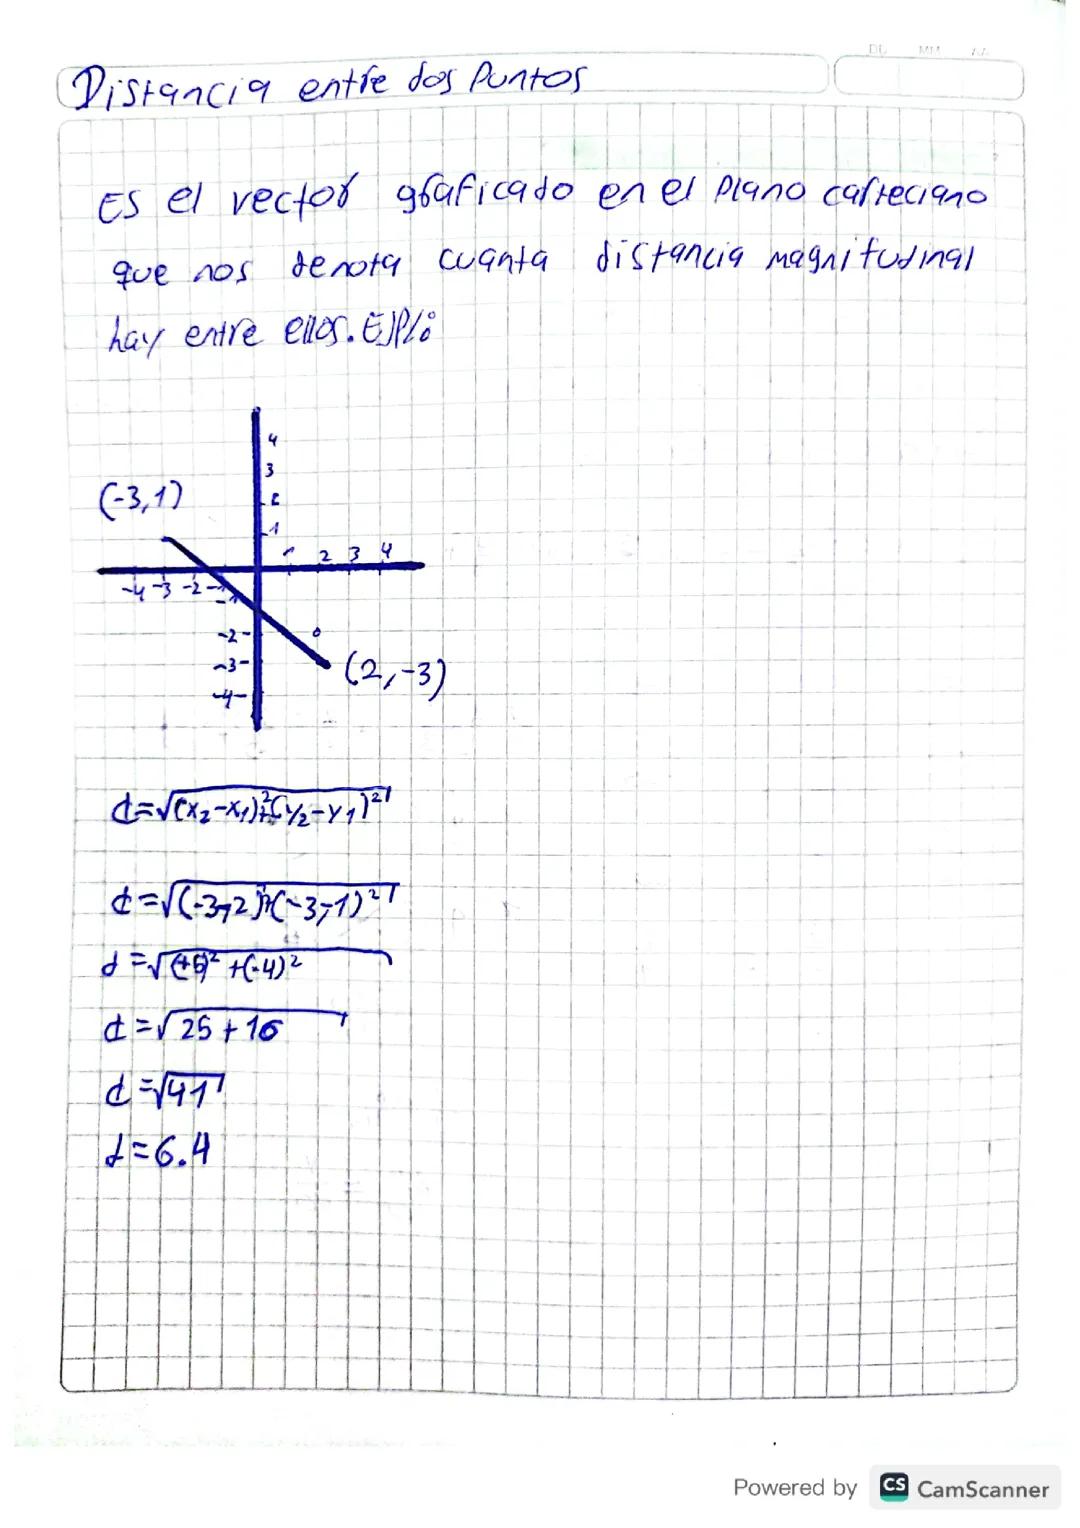 DD MM AA
Distancia entre dos Puntos
Es el vector graficado en el Plano carteciano
que nos denota cuanta distancia magnitudinal
hay entre ellos. EJPl:
4
3
(-3,1)
2
1
1 2 3 4
-4 -3 -2 -1
-1
-2
-3
(2,-3)
-4
d=√(x₂-x₁)²+(y₂-y₁)²
d=√(-3-2)²+(-3-1)²
d=√(+5)²+(-4)²
d=√25+16
d=√41
d=6.4
Powered by CS CamScanner